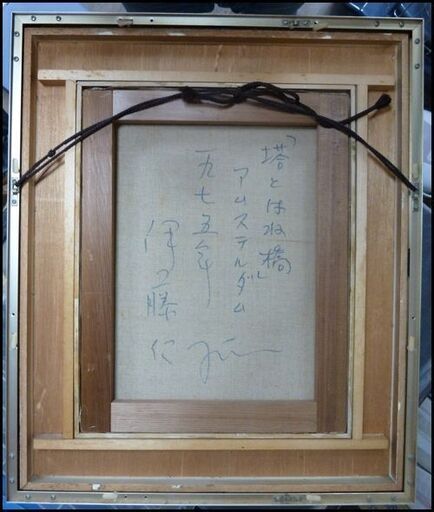 「塔とはね橋」
アムステルダム
一九七五年
伊藤仁